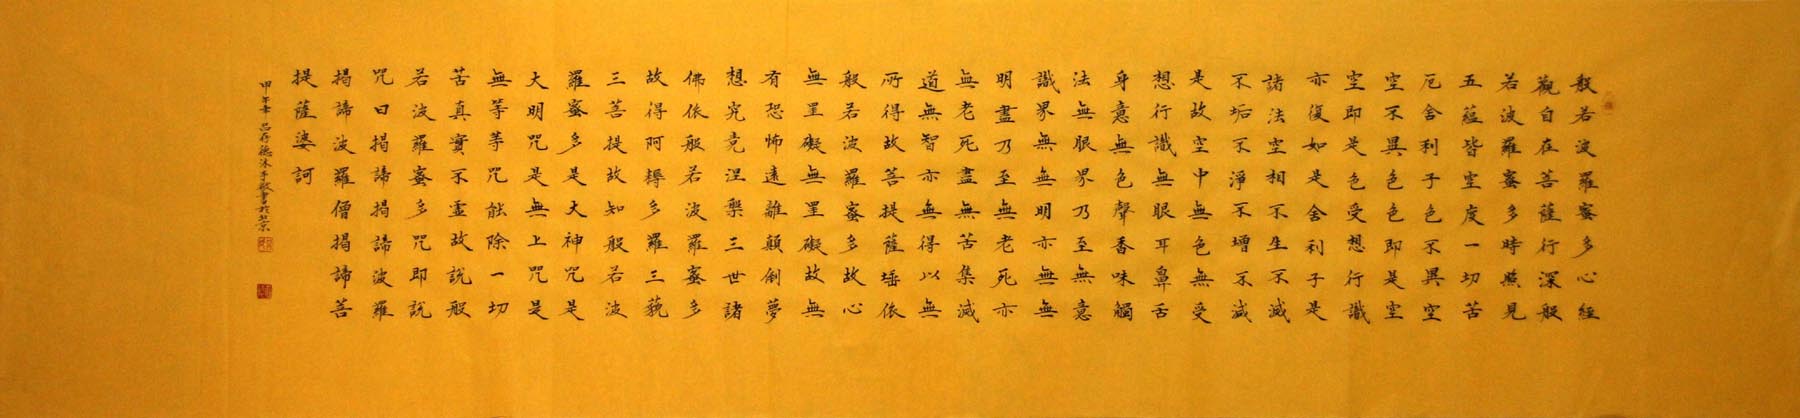 般若波羅蜜多心經
觀自在菩薩行深般
若波羅蜜多時照見
五蘊皆空度一切苦
厄舍利子色不異空
空不異色色即是空
空即是色受想行識
亦復如是舍利子是
諸法空相不生不滅
不垢不淨不增不減
是故空中無色無受
想行識無眼耳鼻舌
身意無色聲香味觸
法無眼界乃至無意
識界無無明亦無無
明盡乃至無老死亦
無老死盡無苦集滅
道無智亦無得以無
所得故菩提薩埵依
般若波羅蜜多故心
無罣礙無罣礙故無
有恐怖遠離顛倒夢
想究竟涅槃三世諸
佛依般若波羅蜜多
故得阿耨多羅三藐
三菩提故知般若波
羅蜜多是大神咒是
大明咒是無上咒是
無等等咒能除一切
苦真實不虛故說般
若波羅蜜多咒即說
咒曰揭諦揭諦波羅
揭諦波羅僧揭諦菩
提薩婆訶
甲午年 呂德沐手敬書於北京